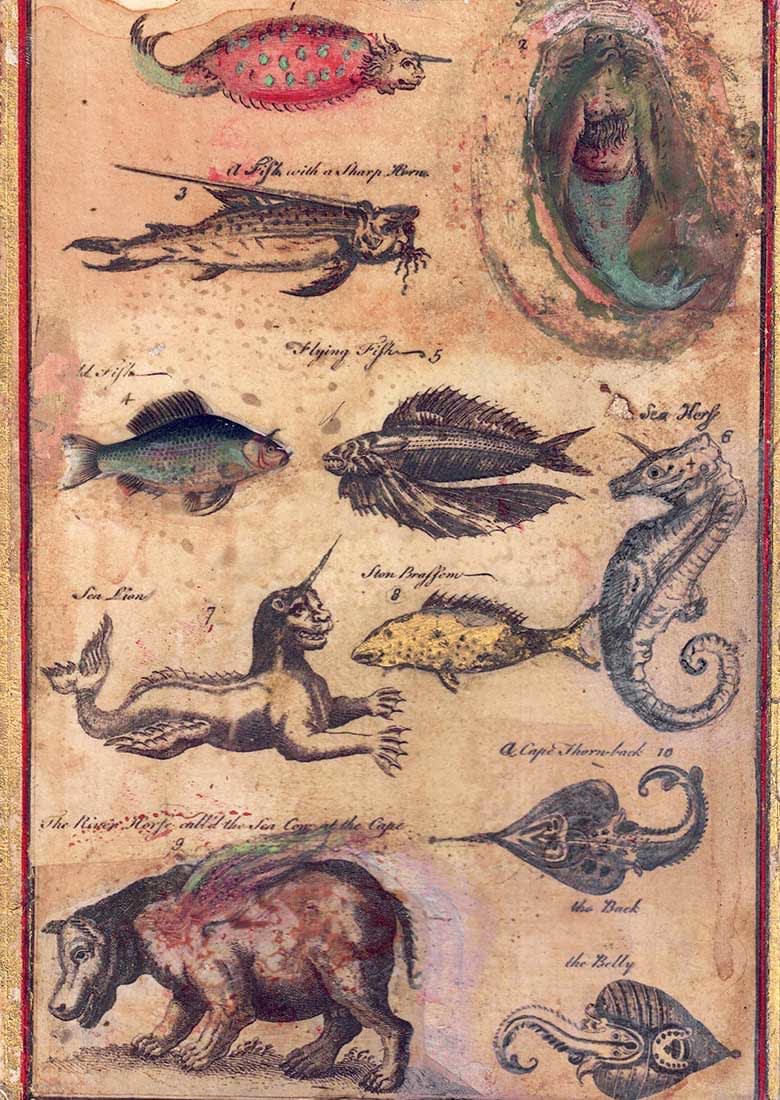 1
2
A Fiſh with a Sharp Horn.
3
Flying Fiſh 5
ld Fiſh
4
Sea Horſ
6
Ston Braſſem
8
Sea Lion
7
A Cape Thorn-back 10
The River Horſe, call'd the Sea Cow at the Cape
9
the Back
the Belly